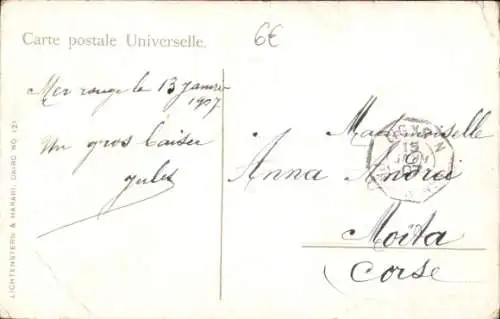 Carte postale Universelle.
6€
Mer rouge le 13 Janvier
1907
Un gros baiser
Jules
Mademoiselle
Anna Andrei
Moïta
Corse
15
07
LICHTENSTERN & HARARI, CAIRO NO. 121